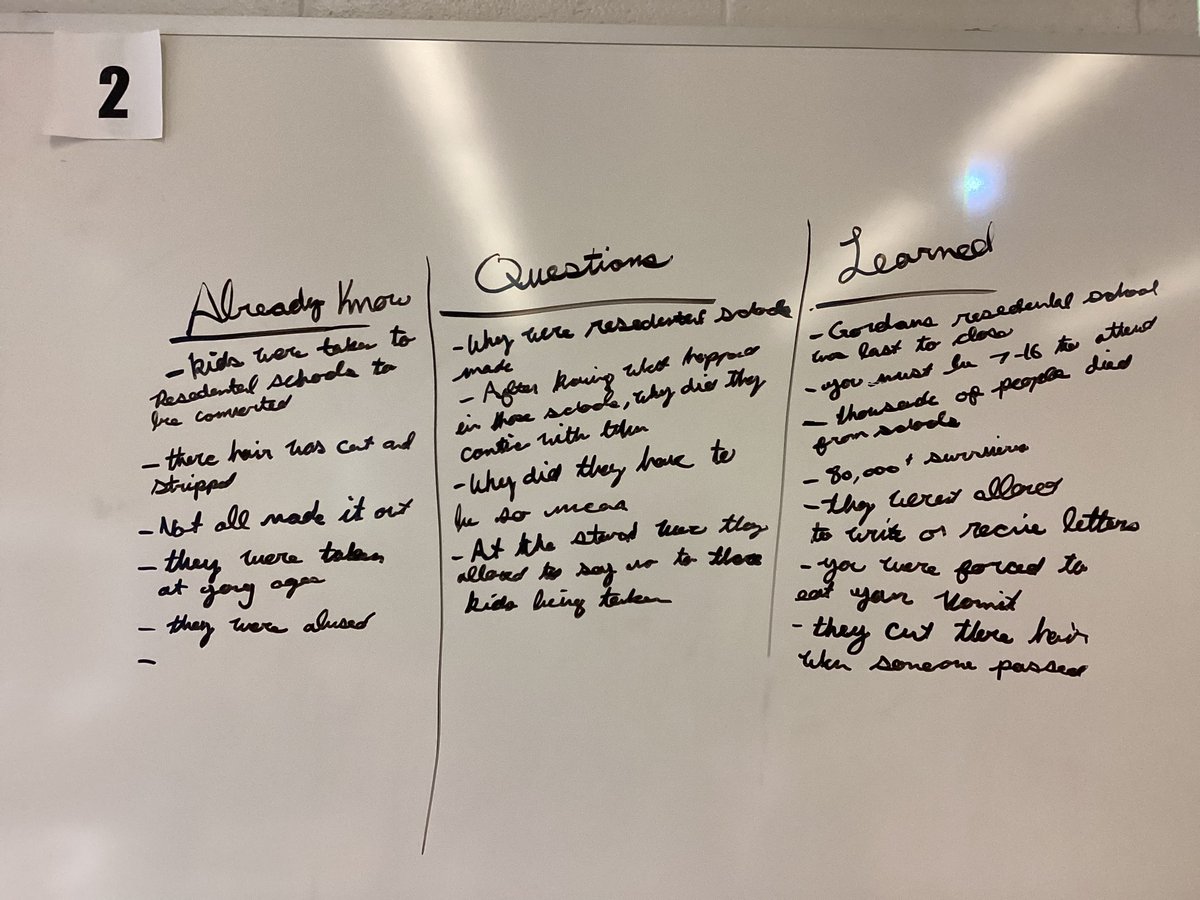 2
Already Know
- kids were taken to
Resedental schools to
be converted
- there hair was cut and
stripped
- Not all made it out
- they were taken
at yong ages
- they were abused
-
Questions
- Why were resedental schools
made
- After knowing what happened
in those schools, why did they
with them
- Why did they have to
be so mean
- At the were they
allowed to say no to there
kids being taken
Learned
- Gordans resedental school
was last to close
- you must be 7-16 to attend
- thousands of people died
from schools
- 80,000+ survivors
- they weren't allowed
to write or recive letters
- you were forced to
eat your vomit
- they cut there hair
when someone passed